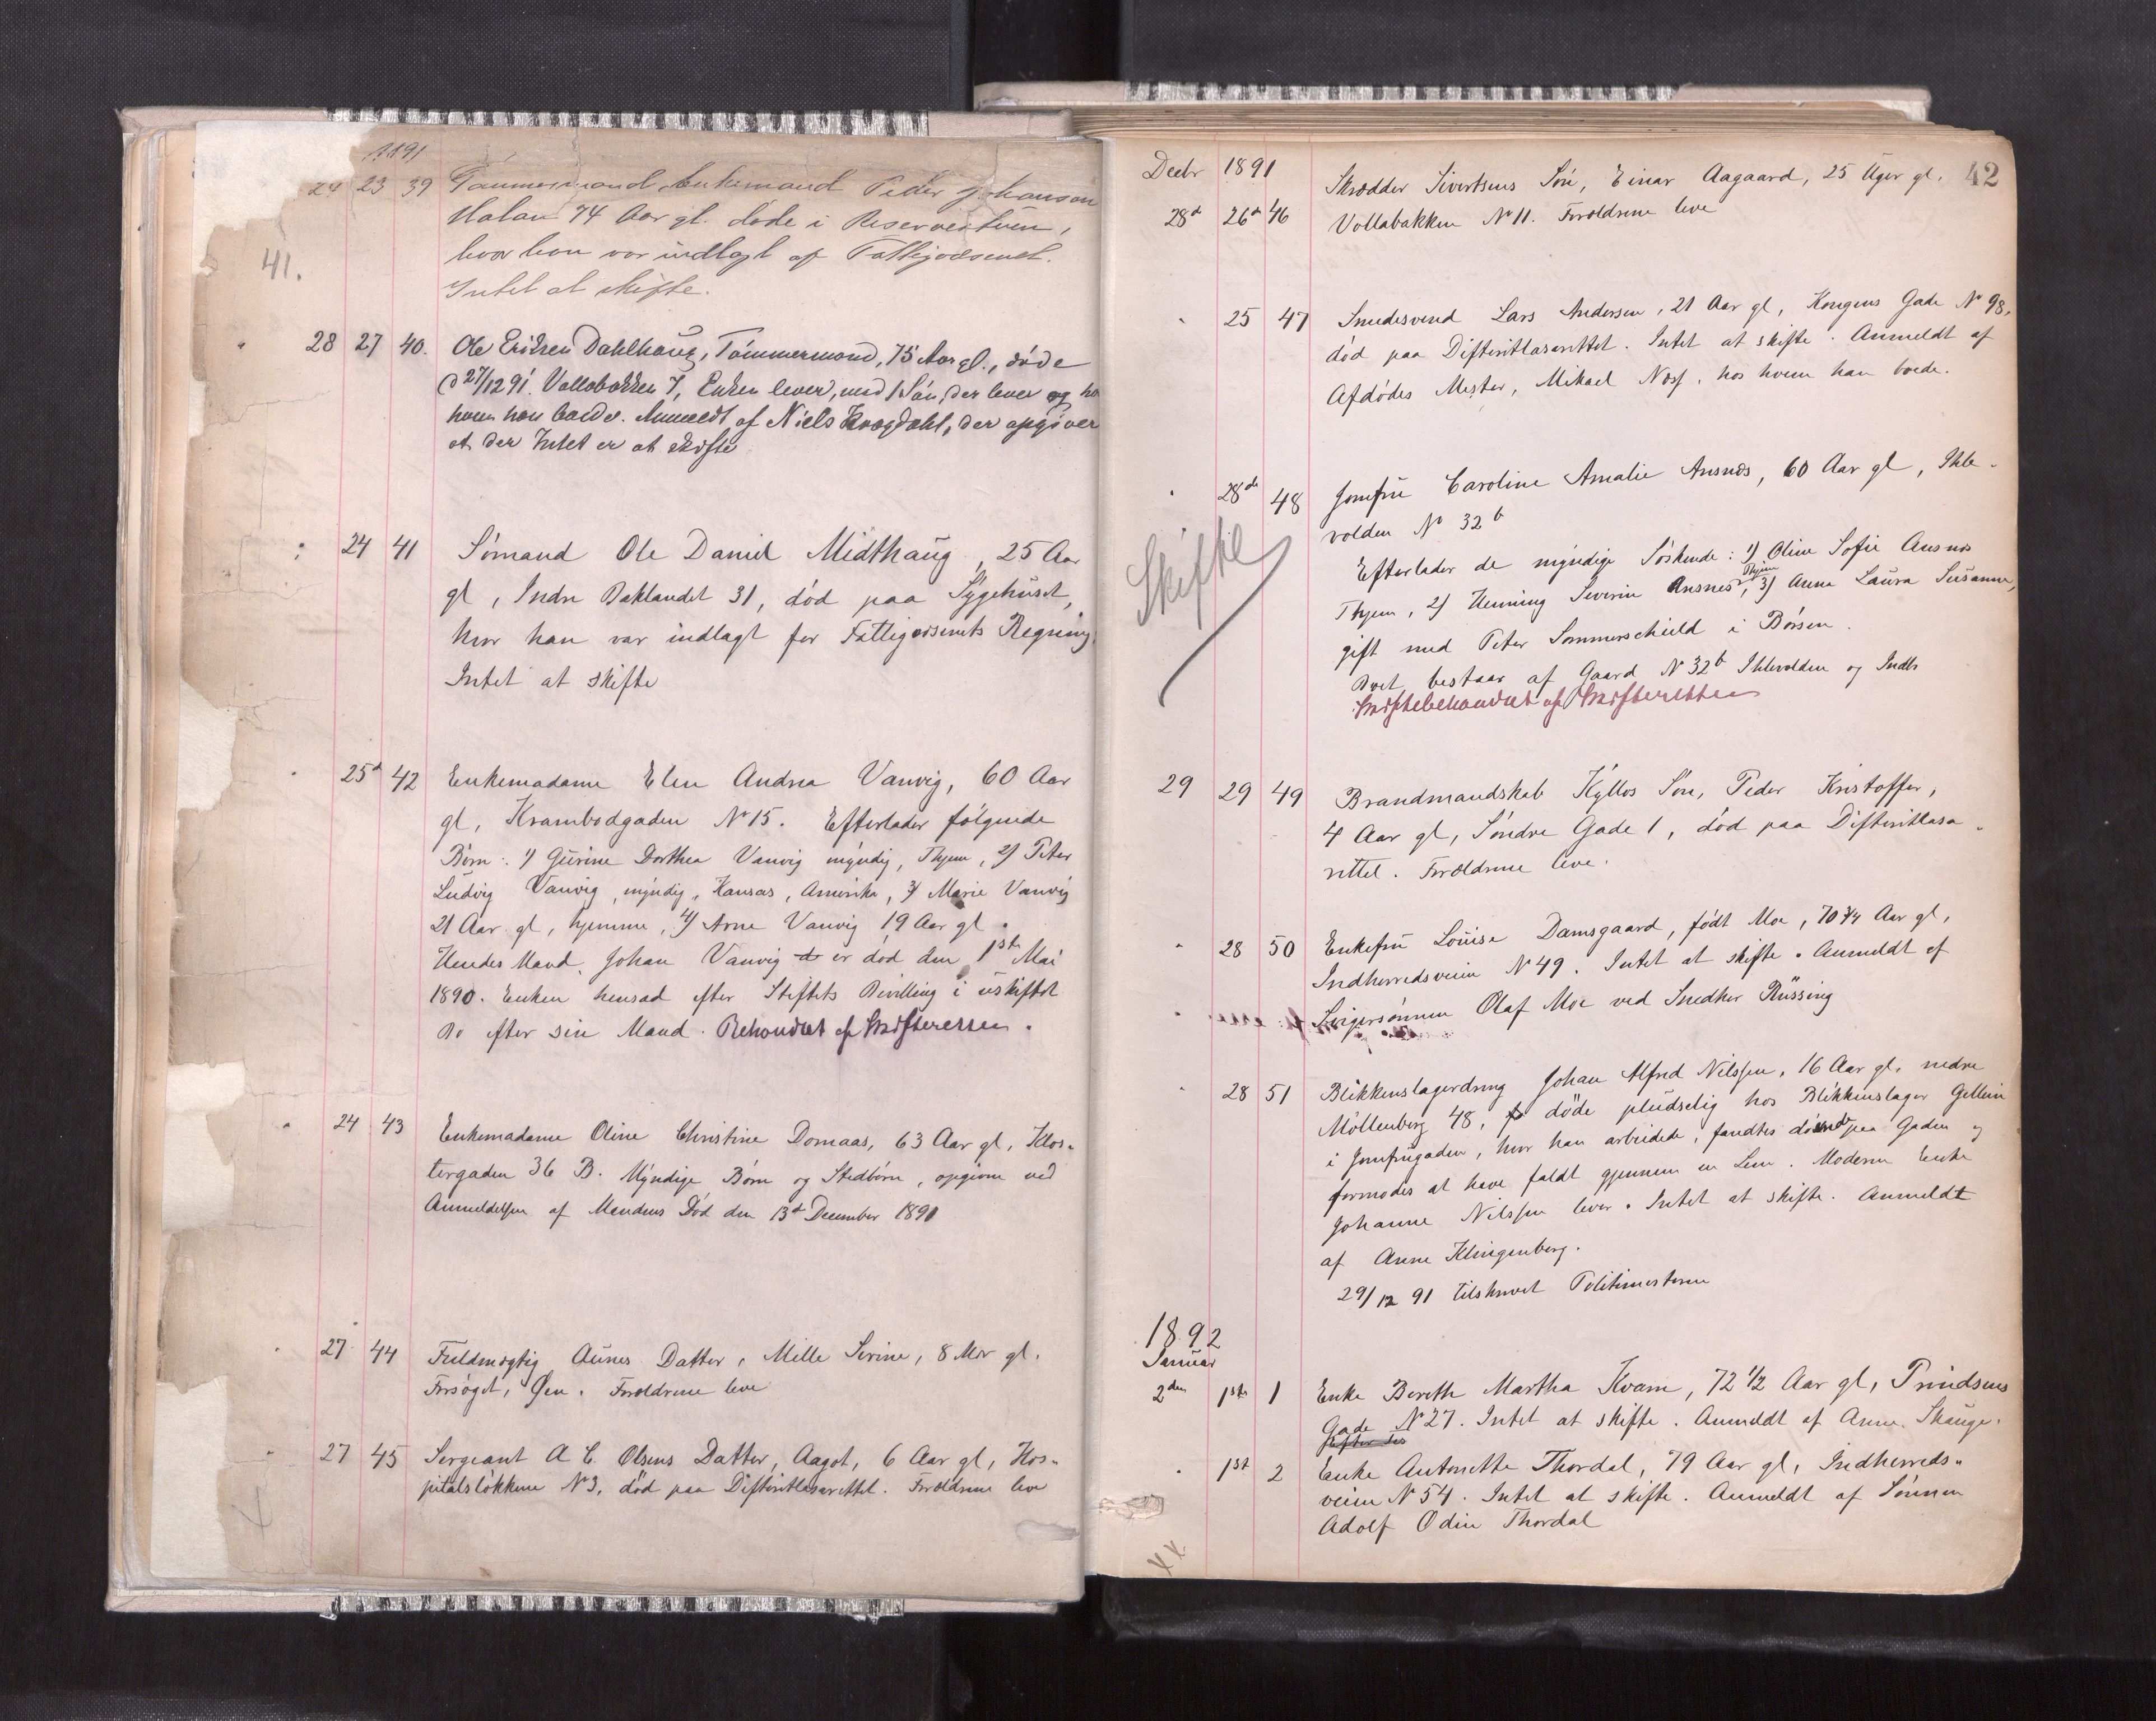 1891
24 23 39 Tømmermand Enkemand Peder Johansen
Halan 74 Aar gl. døde i Reservestuen,
hvor han var indlagt af Fattigvæsenet.
Intet at skifte.
41.
" 28 27 40. Ole Eriksen Dahlhaug, Tømmermand, 75 Aar gl., døde
d 27/12 91. Vollabakken 7, Enken lever, med 1 Søn, der lever og ho
hvem han boede. Anmeldt af Niels Krogdahl, der opgiver
at der Intet er at skifte
" 24 41 Sømand Ole Daniel Midthaug, 25 Aar
gl, Indre Baklandet 31, død paa Sygehuset,
hvor han var indlagt for Fattigvæsenets Regning.
Intet at skifte
" 25d 42 Enkemadame Elen Andrea Vanvig, 60 Aar
gl, Krambodgaden No 15. Efterlader følgende
Børn: 1) Gurine Dorthea Vanvig myndig, Thjem, 2) Peter
Ludvig Vanvig, myndig, Kansas, Amerika, 3) Marie Vanvig
21 Aar gl, hjemme, 4) Arne Vanvig 19 Aar gl.
Hendes Mand, Johan Vanvig d er død den 1ste Mai
1890. Enken hensad efter Stiftets Bevilling i uskiftet
Bo efter sin Mand. Behandlet af Skifteretten.
" 24 43 Enkemadame Oline Christine Domaas, 63 Aar gl, Klos-
tergaden 36 B. Myndige Børn og Stedbørn, opgivne ved
Anmeldelsen af Mandens Død den 13de December 1890
" 27 44 Fuldmægtig Aunes Datter, Mille Serine, 8 Mdr gl.
Forsøget, Øen. Forældrene leve
" 27 45 Sergeant A C. Olsens Datter, Aagot, 6 Aar gl, Hos-
pitalsløkken No 3, død paa Difteritlasarettet. Forældrene leve
42
Decbr 1891
28d 26d 46 Skrædder Sivertsens Søn, Einar Aagaard, 25 Uger gl.
Vollabakken No 11. Forældrene leve
" 25 47 Smedesvend Lars Andersen, 21 Aar gl, Kongens Gade No 98,
død paa Difteritlasarettet. Intet at skifte. Anmeldt af
Afdødes Mester, Mikael Næss, hos hvem han boede.
" 28de 48 Jomfru Caroline Amalie Ansnes, 60 Aar gl, Ihle-
volden No 32b
Skifte
Efterlader de myndige Søskende: 1) Oline Sofie Ansnes
Thjem, 2) Henning Severin Ansnes, Thjem 3) Anna Laura Susanne,
gift med Peter Sommerschield i Børsen.
Boet bestaar af Gaard No 32b Ihlevolden og Indbo
Skiftebehandlet af Skifteretten
29 29 49 Brandmandskab Kyllos Søn, Peder Kristoffer,
4 Aar gl, Søndre Gade 1, død paa Difteritlasa-
rettet. Forældrene leve.
" 28 50 Enkefru Louise Damsgaard, født Moe, 70 3/4 Aar gl,
Indherredsveien No 49. Intet at skifte. Anmeldt af
Svigersønnen Olaf Moe ved Snedker Rüssing
" 28 51 Blikkenslagerdreng Johan Alfred Nilssen, 16 Aar gl, nedre
Møllenberg 48, døde pludselig hos Blikkenslager Gellein
i Jomfrugaden, hvor han arbeidede, fandtes døende paa Gaden og
formodes at have faldt gjennem en Lem. Moderen Enke
Johanne Nilssen lever. Intet at skifte. Anmeldt
af Anne Klingenberg.
29/12 91 tilskrevet Politimesteren
1892
Januar
2den 1ste 1 Enke Bereth Martha Kvam, 72 1/2 Aar gl, Prindsens
Gade No 27. Intet at skifte. Anmeldt af Anne Skauge.
" 1st 2 Enke Antonette Thordal, 79 Aar gl, Indherreds-
veien No 54. Intet at skifte. Anmeldt af Sønnen
Adolf Odin Thordal
XX